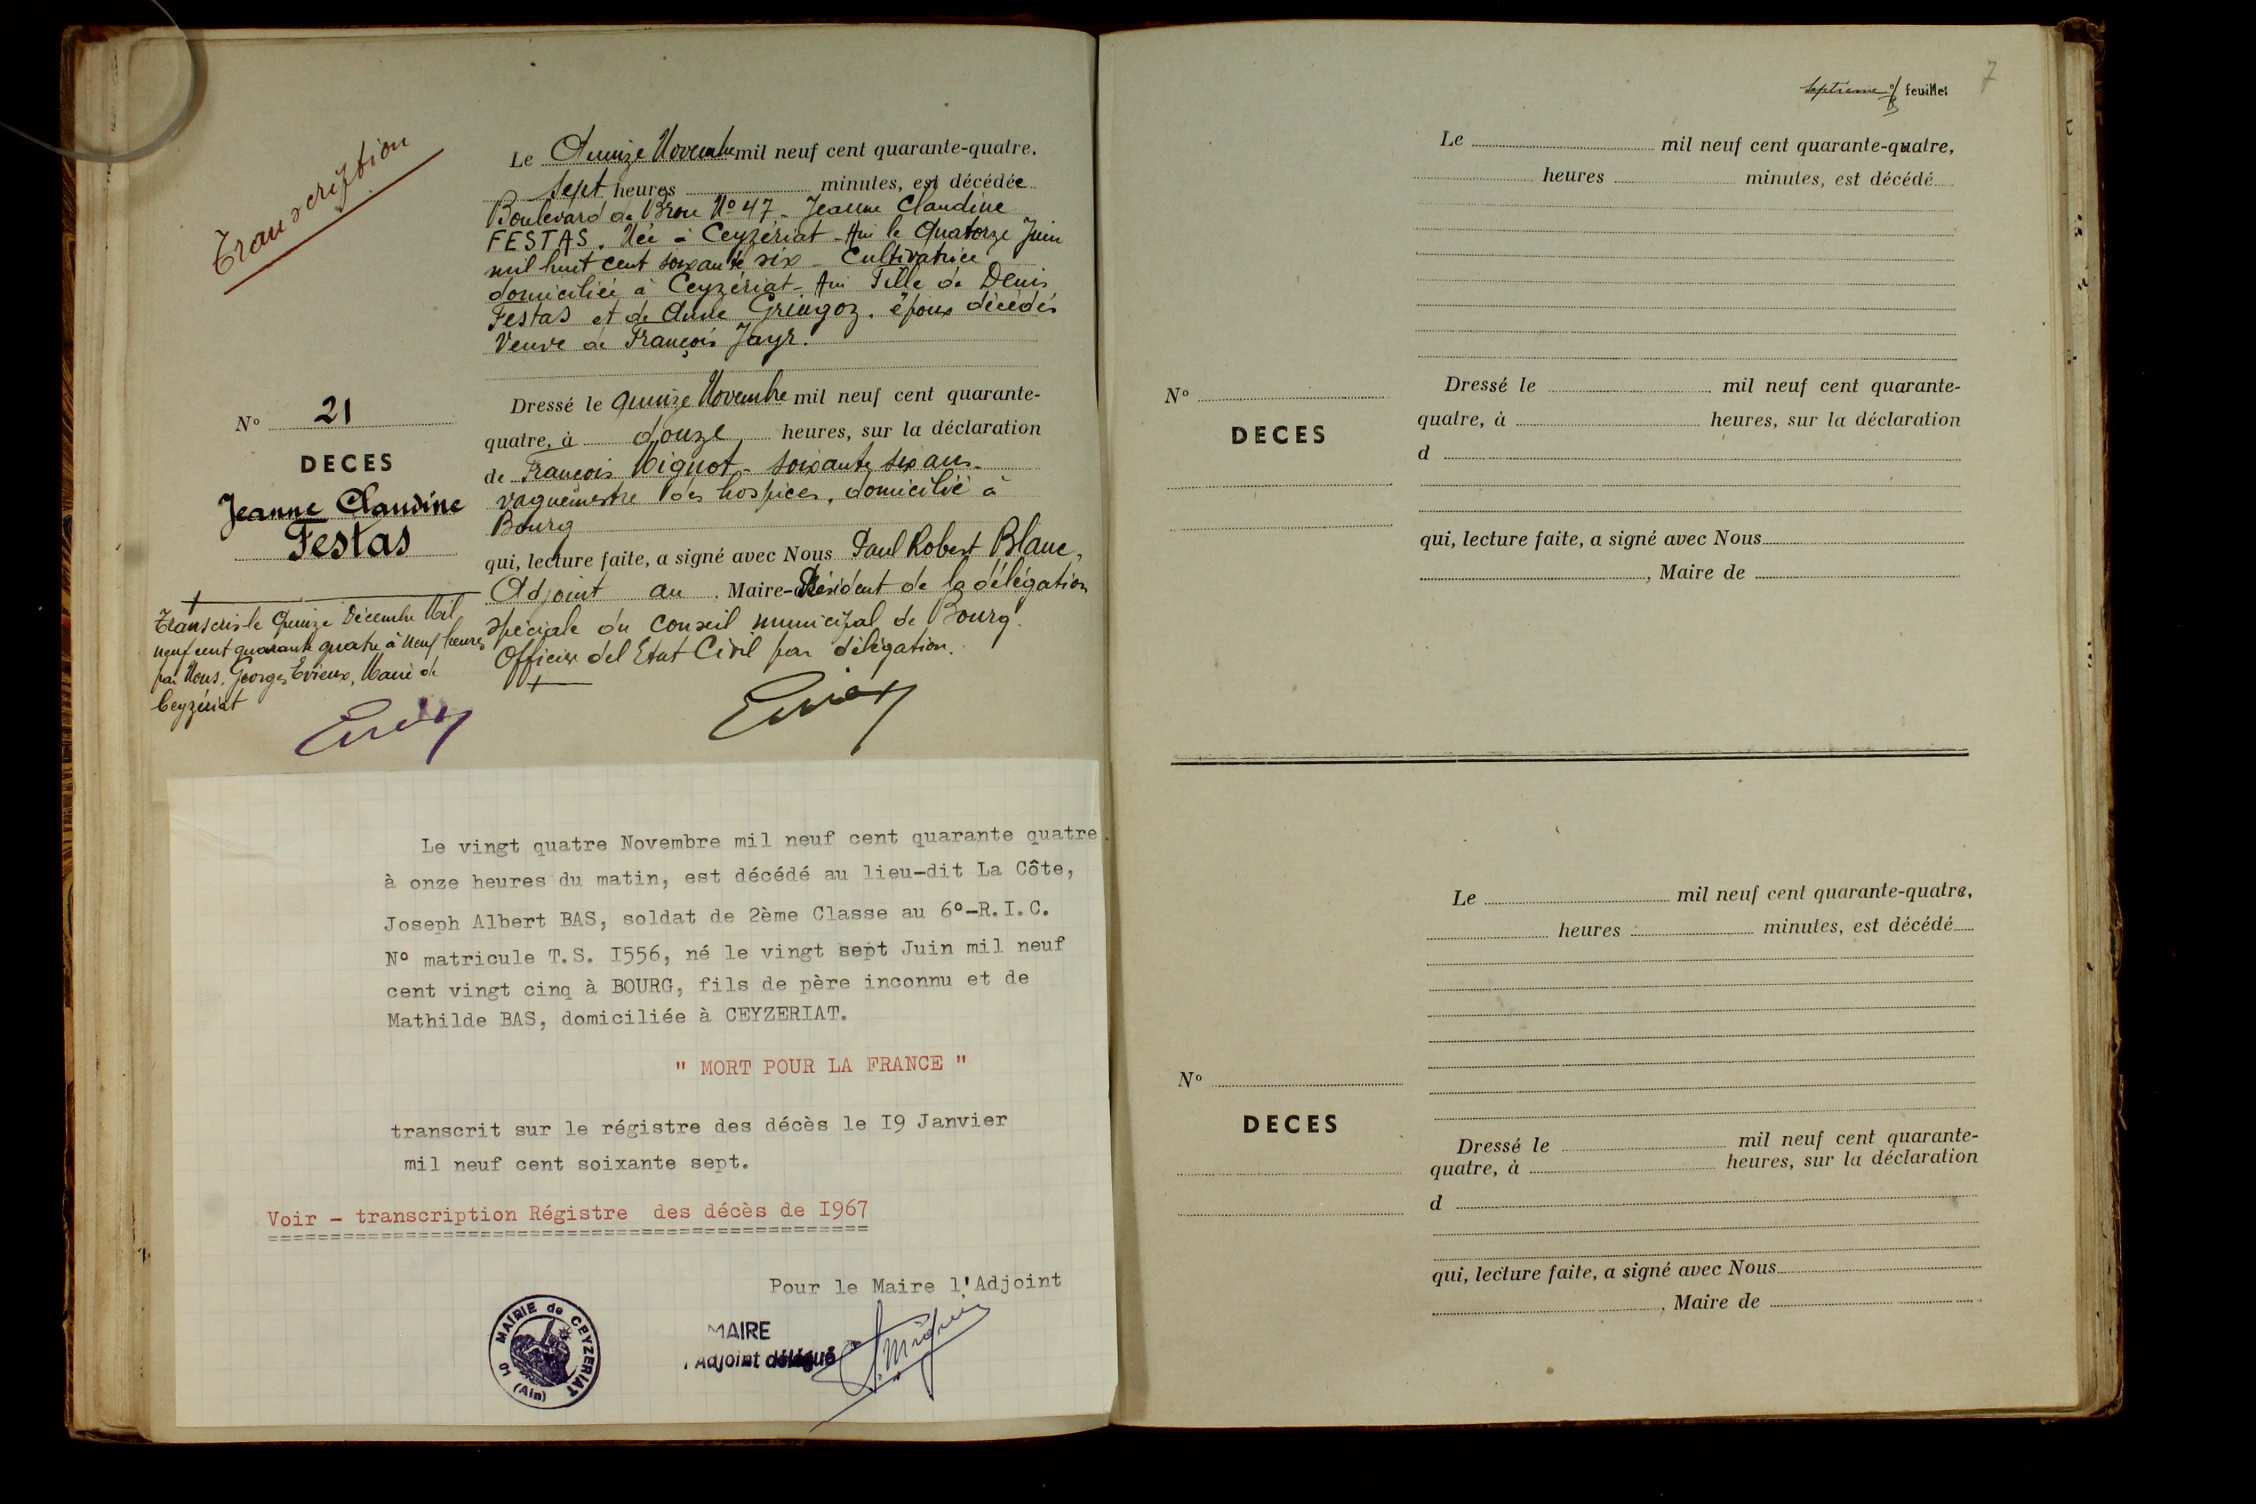 Transcription
Le Quinze Novembre mil neuf cent quarante-quatre.
sept heures minutes, est décédée
Boulevard de Brou No 47 - Jeanne Claudine
FESTAS. Née à Ceyzériat - Ain le Quatorze Juin
mil huit cent soixante six - Cultivatrice
domiciliée à Ceyzériat - Ain Fille de Denis
Festas et de Anne Gringoz. époux décédés
Veuve de François Jayr.
No 21
DECES
Jeanne Claudine
Festas
Dressé le quinze Novembre mil neuf cent quarante-
quatre, à douze heures, sur la déclaration
de François Mignot - soixante six ans -
vaguemestre des hospices, domicilié à
Bourg
qui, lecture faite, a signé avec Nous Paul Robert Blanc,
Adjoint au Maire-Président de la délégation
spéciale du conseil municipal de Bourg.
Officier del Etat Civil par délégation.
Transcris le Quinze Décembre Mil
neuf cent quarante quatre à neuf heures
par Nous. Georges Evieux, Maire de
Ceyzériat
Le vingt quatre Novembre mil neuf cent quarante quatre.
à onze heures du matin, est décédé au lieu-dit La Côte,
Joseph Albert BAS, soldat de 2ème Classe au 6°-R.I.C.
N° matricule T.S. I556, né le vingt sept Juin mil neuf
cent vingt cinq à BOURG, fils de père inconnu et de
Mathilde BAS, domiciliée à CEYZERIAT.
" MORT POUR LA FRANCE "
transcrit sur le régistre des décès le I9 Janvier
mil neuf cent soixante sept.
Voir - transcription Régistre des décès de I967
================================================
Pour le Maire l'Adjoint
MAIRIE de CEYZERIAT
01 (Ain)
MAIRE
l'Adjoint délégué
septième feuillet
7
Le mil neuf cent quarante-quatre,
heures minutes, est décédé
No
DECES
Dressé le mil neuf cent quarante-
quatre, à heures, sur la déclaration
d
qui, lecture faite, a signé avec Nous
, Maire de
Le mil neuf cent quarante-quatre,
heures minutes, est décédé
No
DECES
Dressé le mil neuf cent quarante-
quatre, à heures, sur la déclaration
d
qui, lecture faite, a signé avec Nous
, Maire de